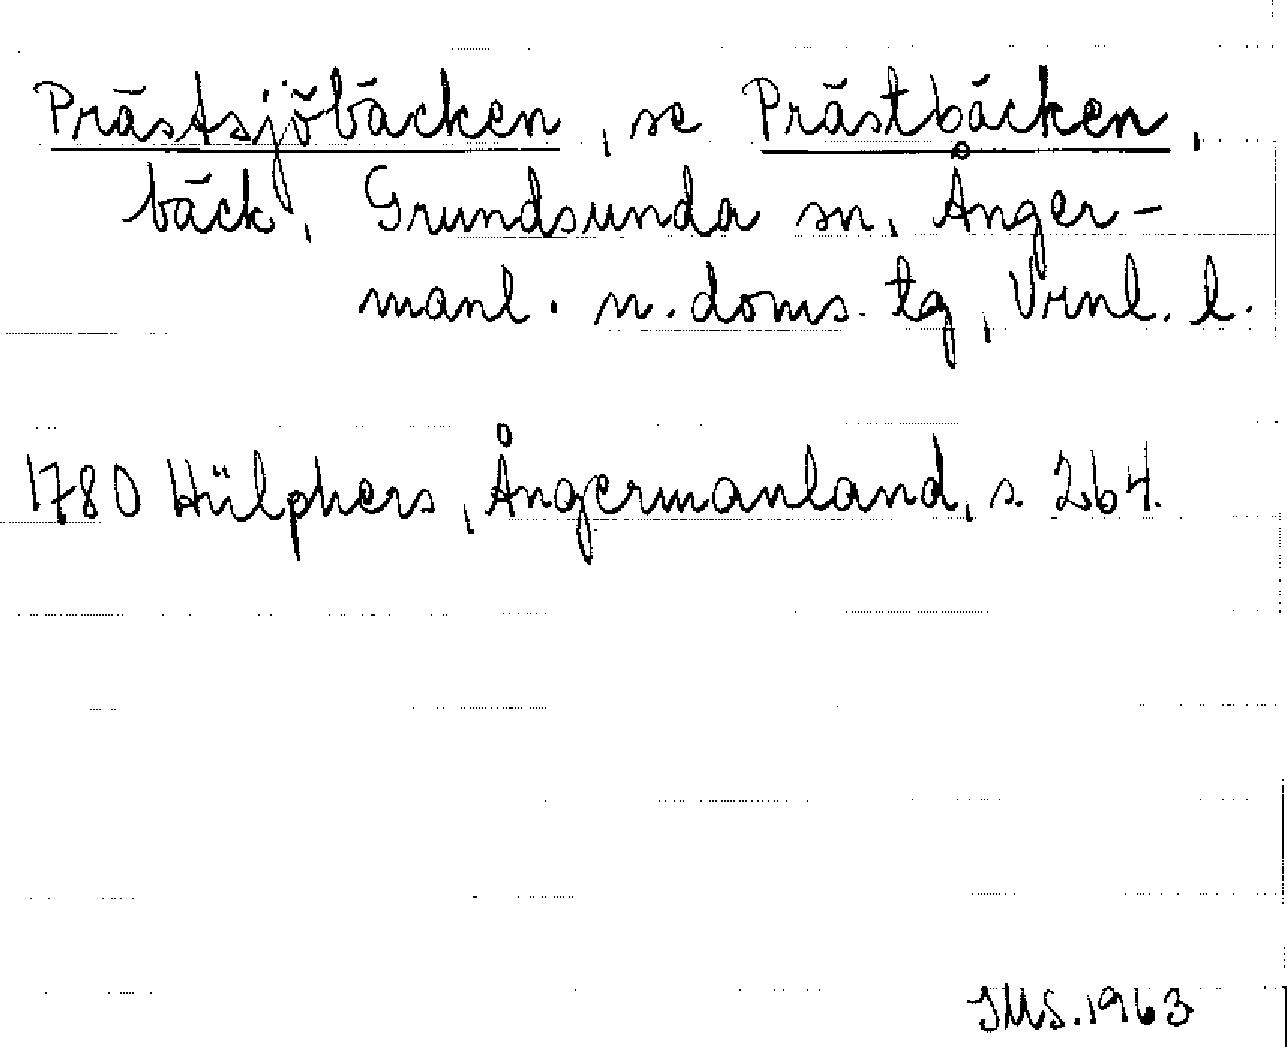 Prästsjöbäcken, se Prästbäcken,
bäck, Grundsunda sn, Ånger-
manl. n. doms. tg, Vrnl. l.
1780 Hülphers, Ångermanland, s. 264.
JMS. 1963